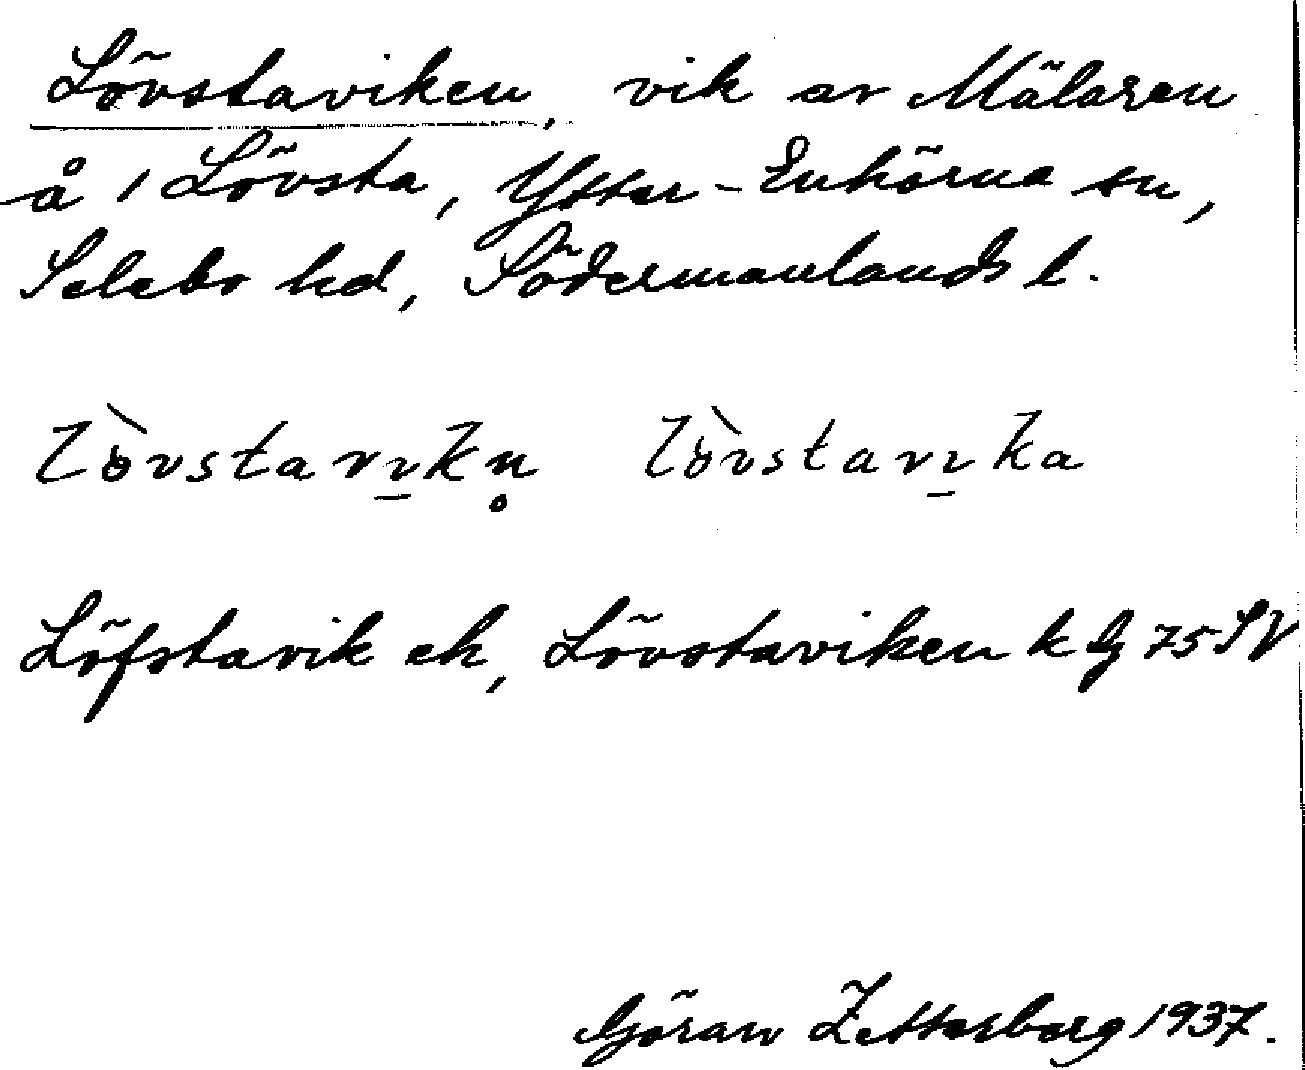 Lövstaviken, vik av Mälaren
å 1 Lövsta, Ytter-Enhörna sn,
Selebo hd, Södermanlands l.
lòvstavɪ̠kn̥ lòvstavɪ̠ka
Löfstavik ek, Lövstaviken k bg 75 SV
Göran Zetterborg 1937.